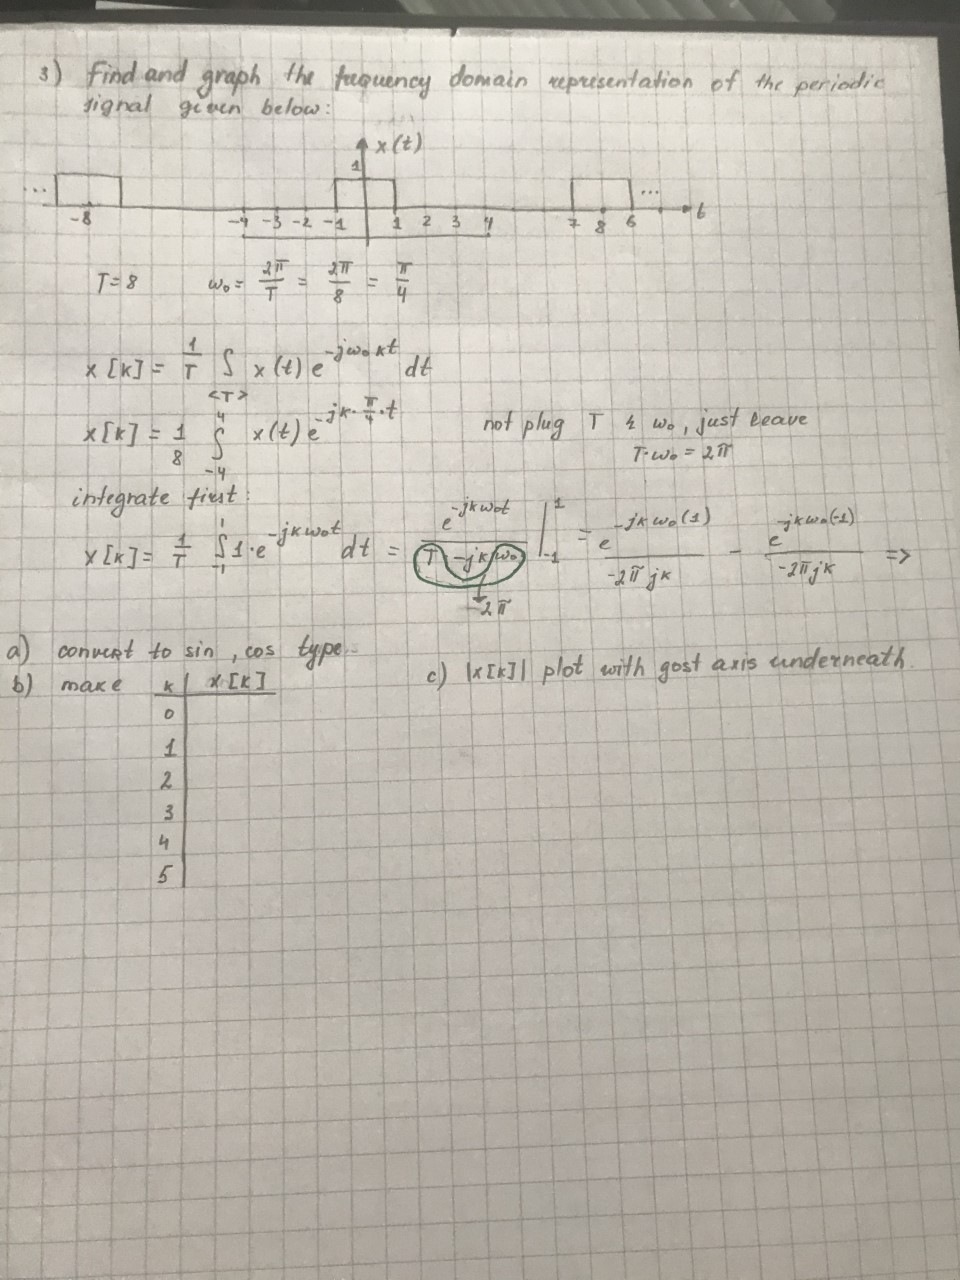 3) Find and graph the frequency domain representation of the periodic
signal given below:
x(t)
1
... ...
-8 -4 -3 -2 -1 1 2 3 4 7 8 6 t
T=8 ω₀ = 2π/T = 2π/8 = π/4
x[k] = 1/T ∫<T> x(t) e^(-jω₀kt) dt
x[k] = 1/8 ∫_-4^4 x(t) e^(-jk·π/4·t) not plug T & ω₀, just leave
T·ω₀ = 2π
integrate first:
x[k] = 1/T ∫_-1^1 1·e^(-jkω₀t) dt = e^(-jkω₀t)/(T -jkω₀) |_-1^1 = e^(-jkω₀(1))/(-2πjk) - e^(-jkω₀(-1))/(-2πjk) =>
2π
a) convert to sin, cos type
b) make k x[k] c) |x[k]| plot with gost axis underneath.
0
1
2
3
4
5